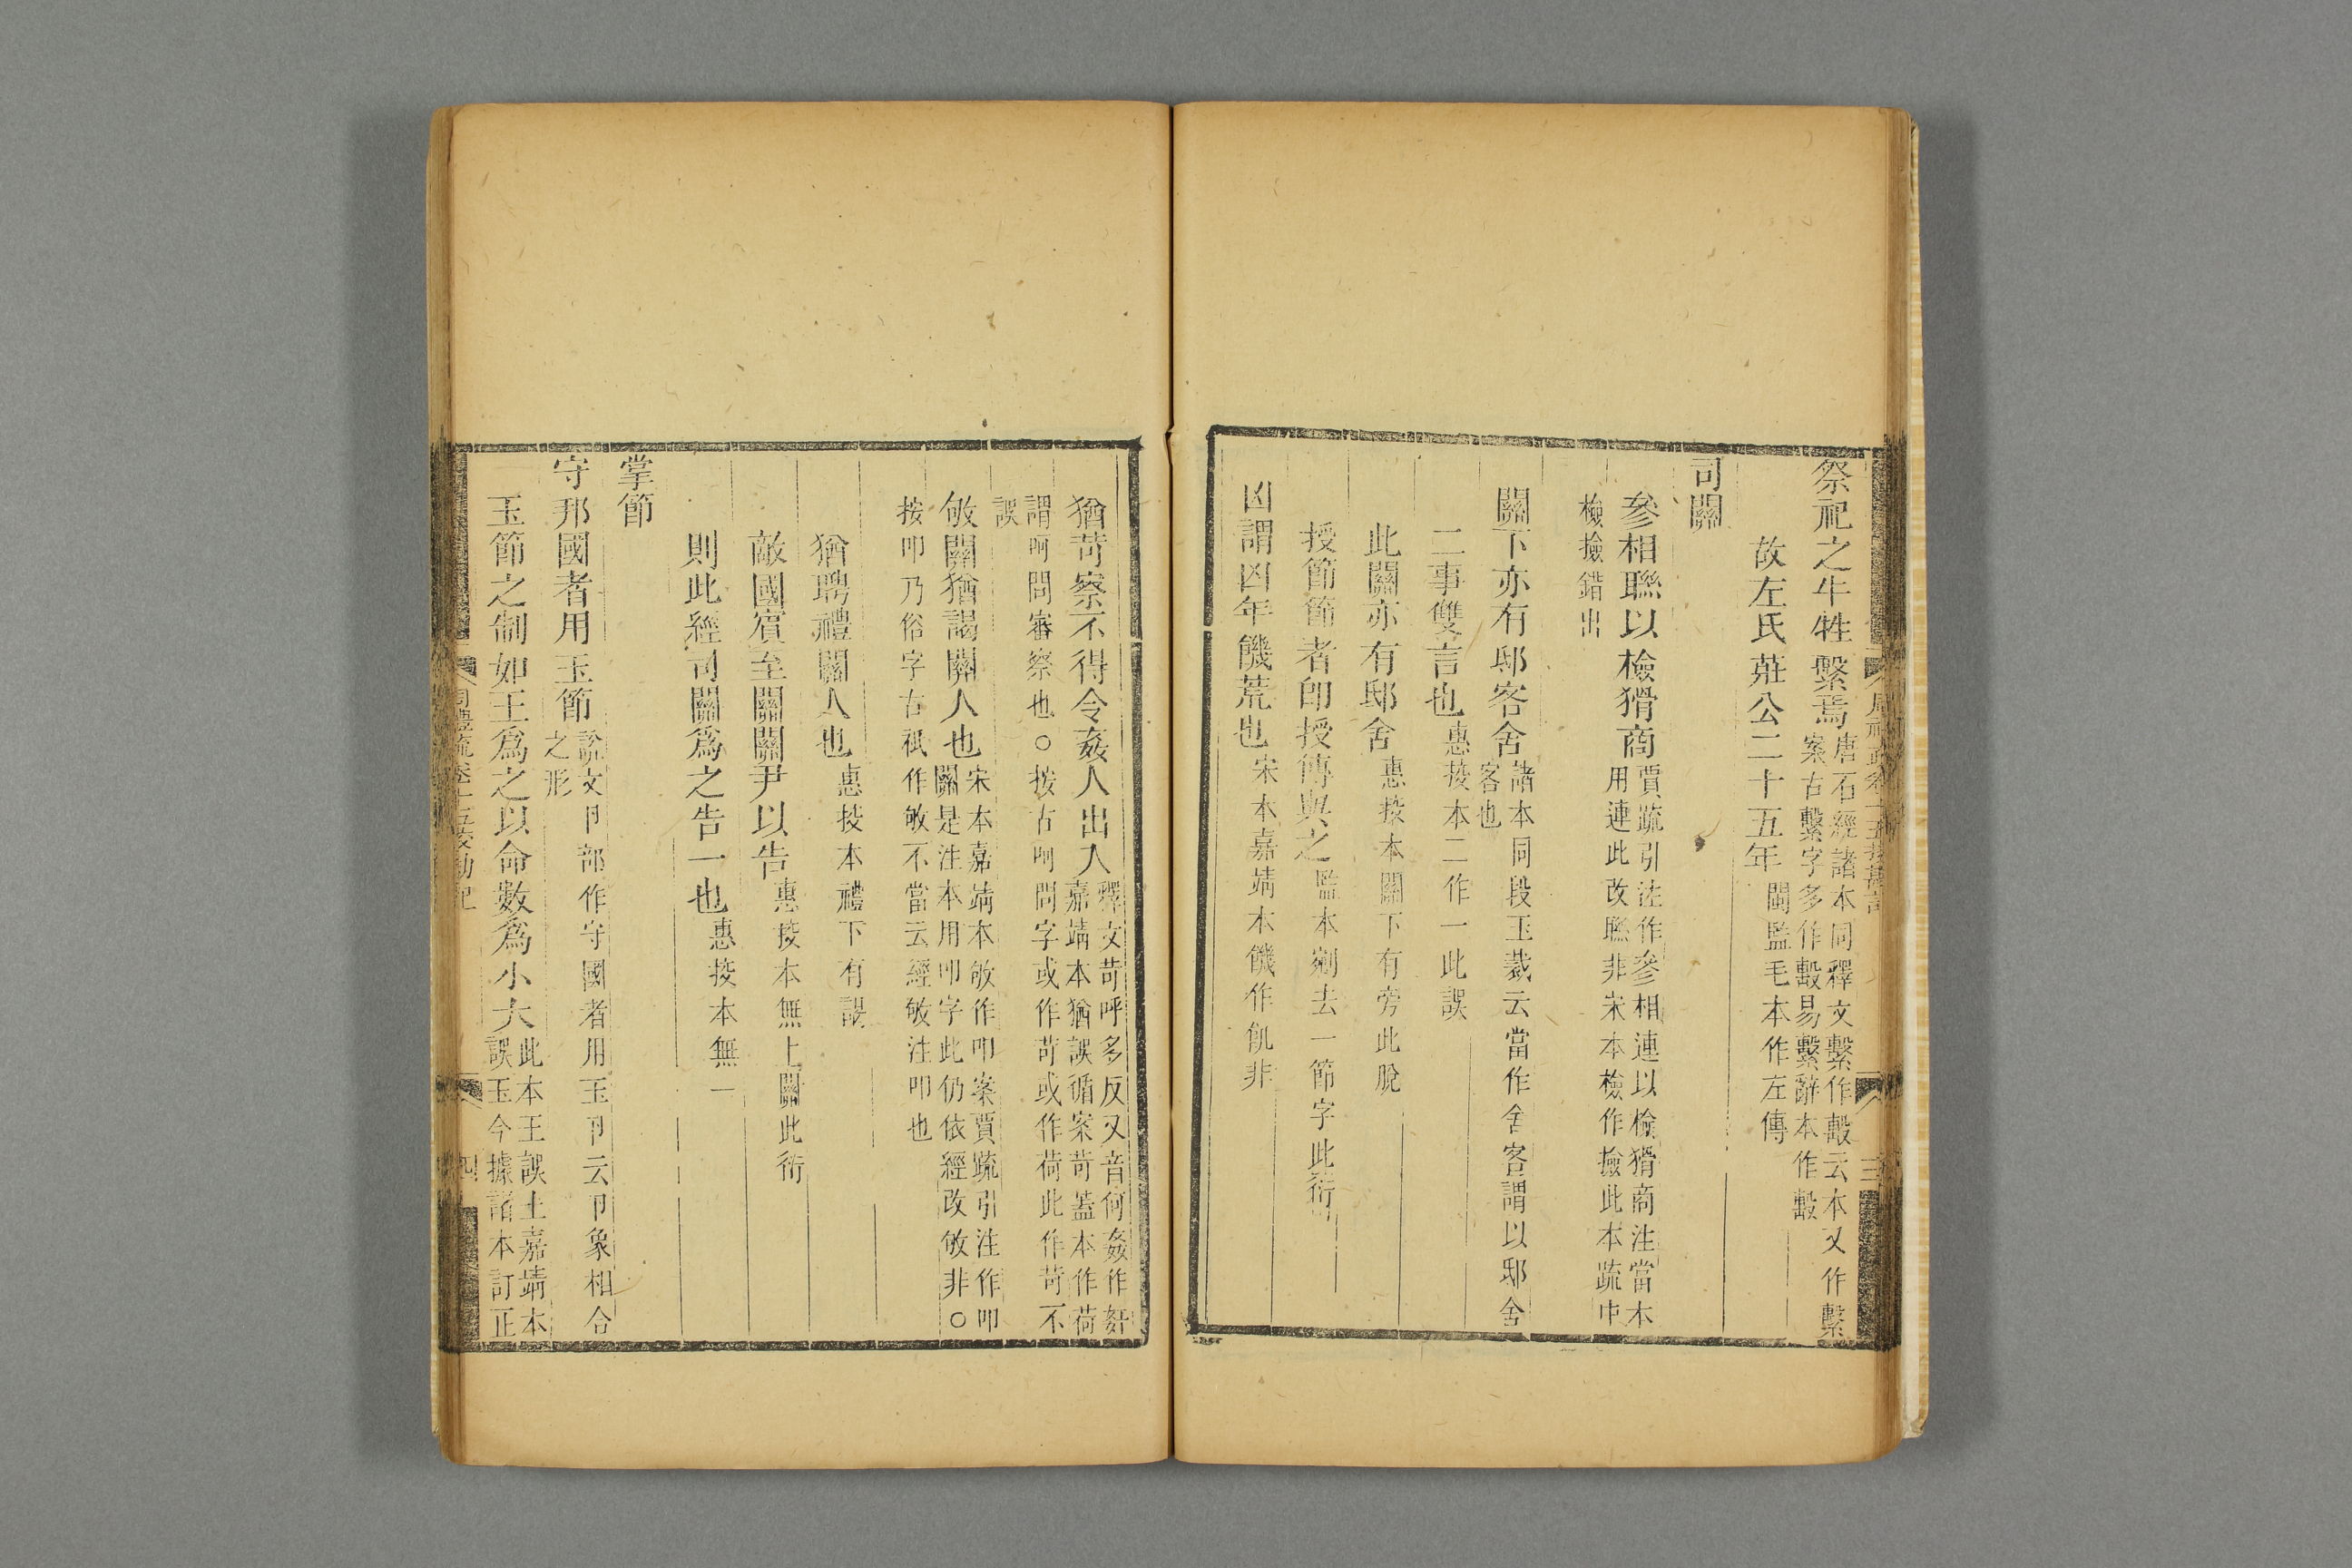 祭祀之牛牲繫焉唐石經諸本同釋文繫作毄云本又作繫
案古繫字多作毄易繫辭本作毄
故左氏莊公二十五年閩監毛本作左傳
司關
參相聯以檢猾商賈疏引注作參相連以檢猾商注當本
用連此改聯非宋本檢作撿此本疏中
檢撿錯出
關下亦有邸客舍諸本同段玉裁云當作舍客謂以邸舍
客也
二事雙言也惠挍本二作一此誤
此關亦有邸舍惠挍本關下有旁此脫
授節節者卽授傳與之監本剜去一節字此衍
凶謂凶年饑荒也宋本嘉靖本饑作飢非
猶苛察不得令姦人出入釋文苛呼多反又音何姦作姧
嘉靖本猶誤循案苛蓋本作荷
謂呵問審察也○按古呵問字或作苛或作荷此作苛不
誤
敂關猶謁關人也宋本嘉靖本敂作叩案賈疏引注作叩
關是注本用叩字此仍依經改敂非○
按叩乃俗字古衹作敂不當云經敂注叩也
猶聘禮關人也惠挍本禮下有謁
敵國賓至關關尹以告惠挍本無上關此衍
則此經司關爲之告一也惠挍本無一
掌節
守邦國者用玉節說文卪部作守國者用玉卪云卪象相合
之形
玉節之制如王爲之以命數爲小大此本王誤土嘉靖本
誤玉今據諸本訂正
周禮疏卷十五校勘記
四